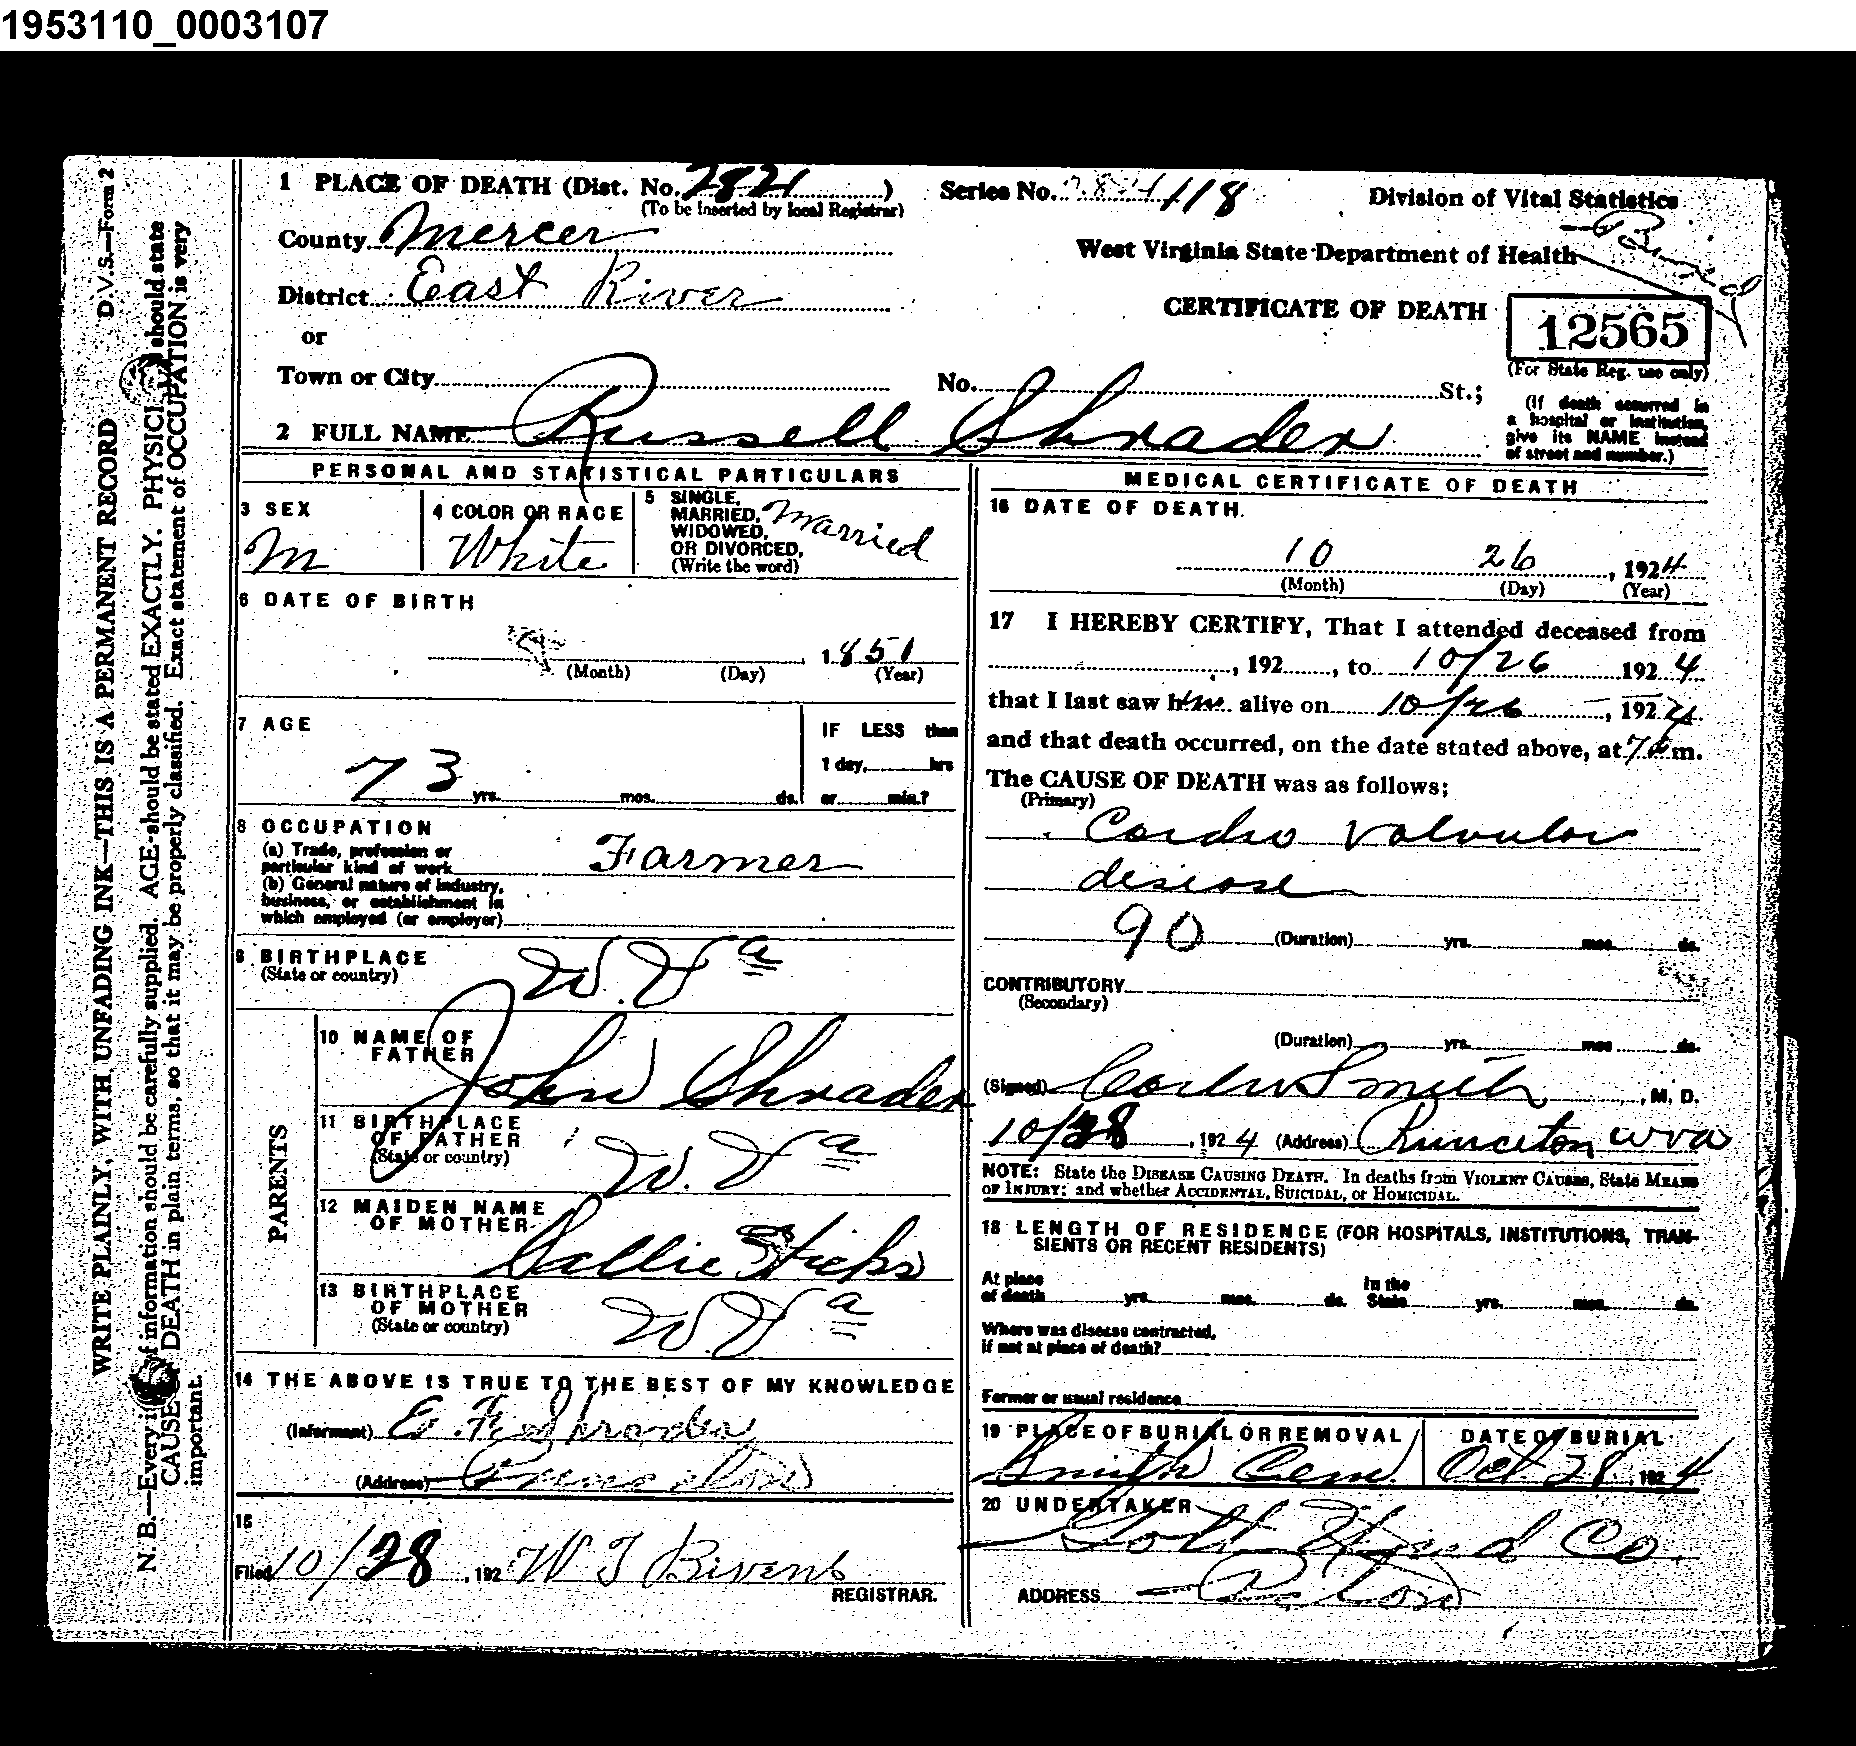 1953110_0003107
D.V.S.—Form 2
WRITE PLAINLY, WITH UNFADING INK—THIS IS A PERMANENT RECORD
N. B.—Every of information should be carefully supplied. AGE should be stated EXACTLY. PHYSICI should state
CAUSE DEATH in plain terms, so that it may be properly classified. Exact statement of OCCUPATION is very
important.
1 PLACE OF DEATH (Dist. No. 2821) Series No. 118
(To be inserted by local Registrar)
Division of Vital Statistics
County Mercer
West Virginia State Department of Health
District East River
CERTIFICATE OF DEATH
12565
or
(For State Reg. use only)
Town or City No. St.;
(If death occurred in
a hospital or institution,
give its NAME instead
of street and number.)
2 FULL NAME Russell Shrader
PERSONAL AND STATISTICAL PARTICULARS
3 SEX
M
4 COLOR OR RACE
White
5 SINGLE,
MARRIED,
WIDOWED,
OR DIVORCED,
(Write the word)
Married
6 DATE OF BIRTH
1851
(Month) (Day) (Year)
7 AGE
73 yrs. mos. ds.
IF LESS than
1 day, hrs
or min.?
8 OCCUPATION
(a) Trade, profession or
particular kind of work
Farmer
(b) General nature of industry,
business, or establishment in
which employed (or employer)
9 BIRTHPLACE
(State or country)
W. Va
PARENTS
10 NAME OF
FATHER
John Shrader
11 BIRTHPLACE
OF FATHER
(State or country)
W. Va
12 MAIDEN NAME
OF MOTHER
Sallie Hicks
13 BIRTHPLACE
OF MOTHER
(State or country)
W. Va
14 THE ABOVE IS TRUE TO THE BEST OF MY KNOWLEDGE
(Informant) E. F. Shrader
(Address) Princeton
15
Filed 10/28, 192 W T Bivens
REGISTRAR.
MEDICAL CERTIFICATE OF DEATH
16 DATE OF DEATH.
10 26, 1924
(Month) (Day) (Year)
17 I HEREBY CERTIFY, That I attended deceased from
, 192 , to 10/26 1924
that I last saw him alive on 10/26, 1924
and that death occurred, on the date stated above, at m.
The CAUSE OF DEATH was as follows;
(Primary)
Cardio Valvular
disease
90 (Duration) yrs. mos. ds.
CONTRIBUTORY
(Secondary)
(Duration) yrs. mos. ds.
(Signed) Smith, M. D.
10/28, 1924 (Address) Princeton W Va
NOTE: State the DISEASE CAUSING DEATH. In deaths from VIOLENT CAUSES, State MEANS
OF INJURY; and whether ACCIDENTAL, SUICIDAL, or HOMICIDAL.
18 LENGTH OF RESIDENCE (FOR HOSPITALS, INSTITUTIONS, TRAN-
SIENTS OR RECENT RESIDENTS)
At place
of death yrs. mos. ds.
In the
State yrs. mos. ds.
Where was disease contracted,
if not at place of death?
Former or usual residence
19 PLACE OF BURIAL OR REMOVAL
Smith Cem.
DATE OF BURIAL
Oct 28, 1924
20 UNDERTAKER
Co.
ADDRESS